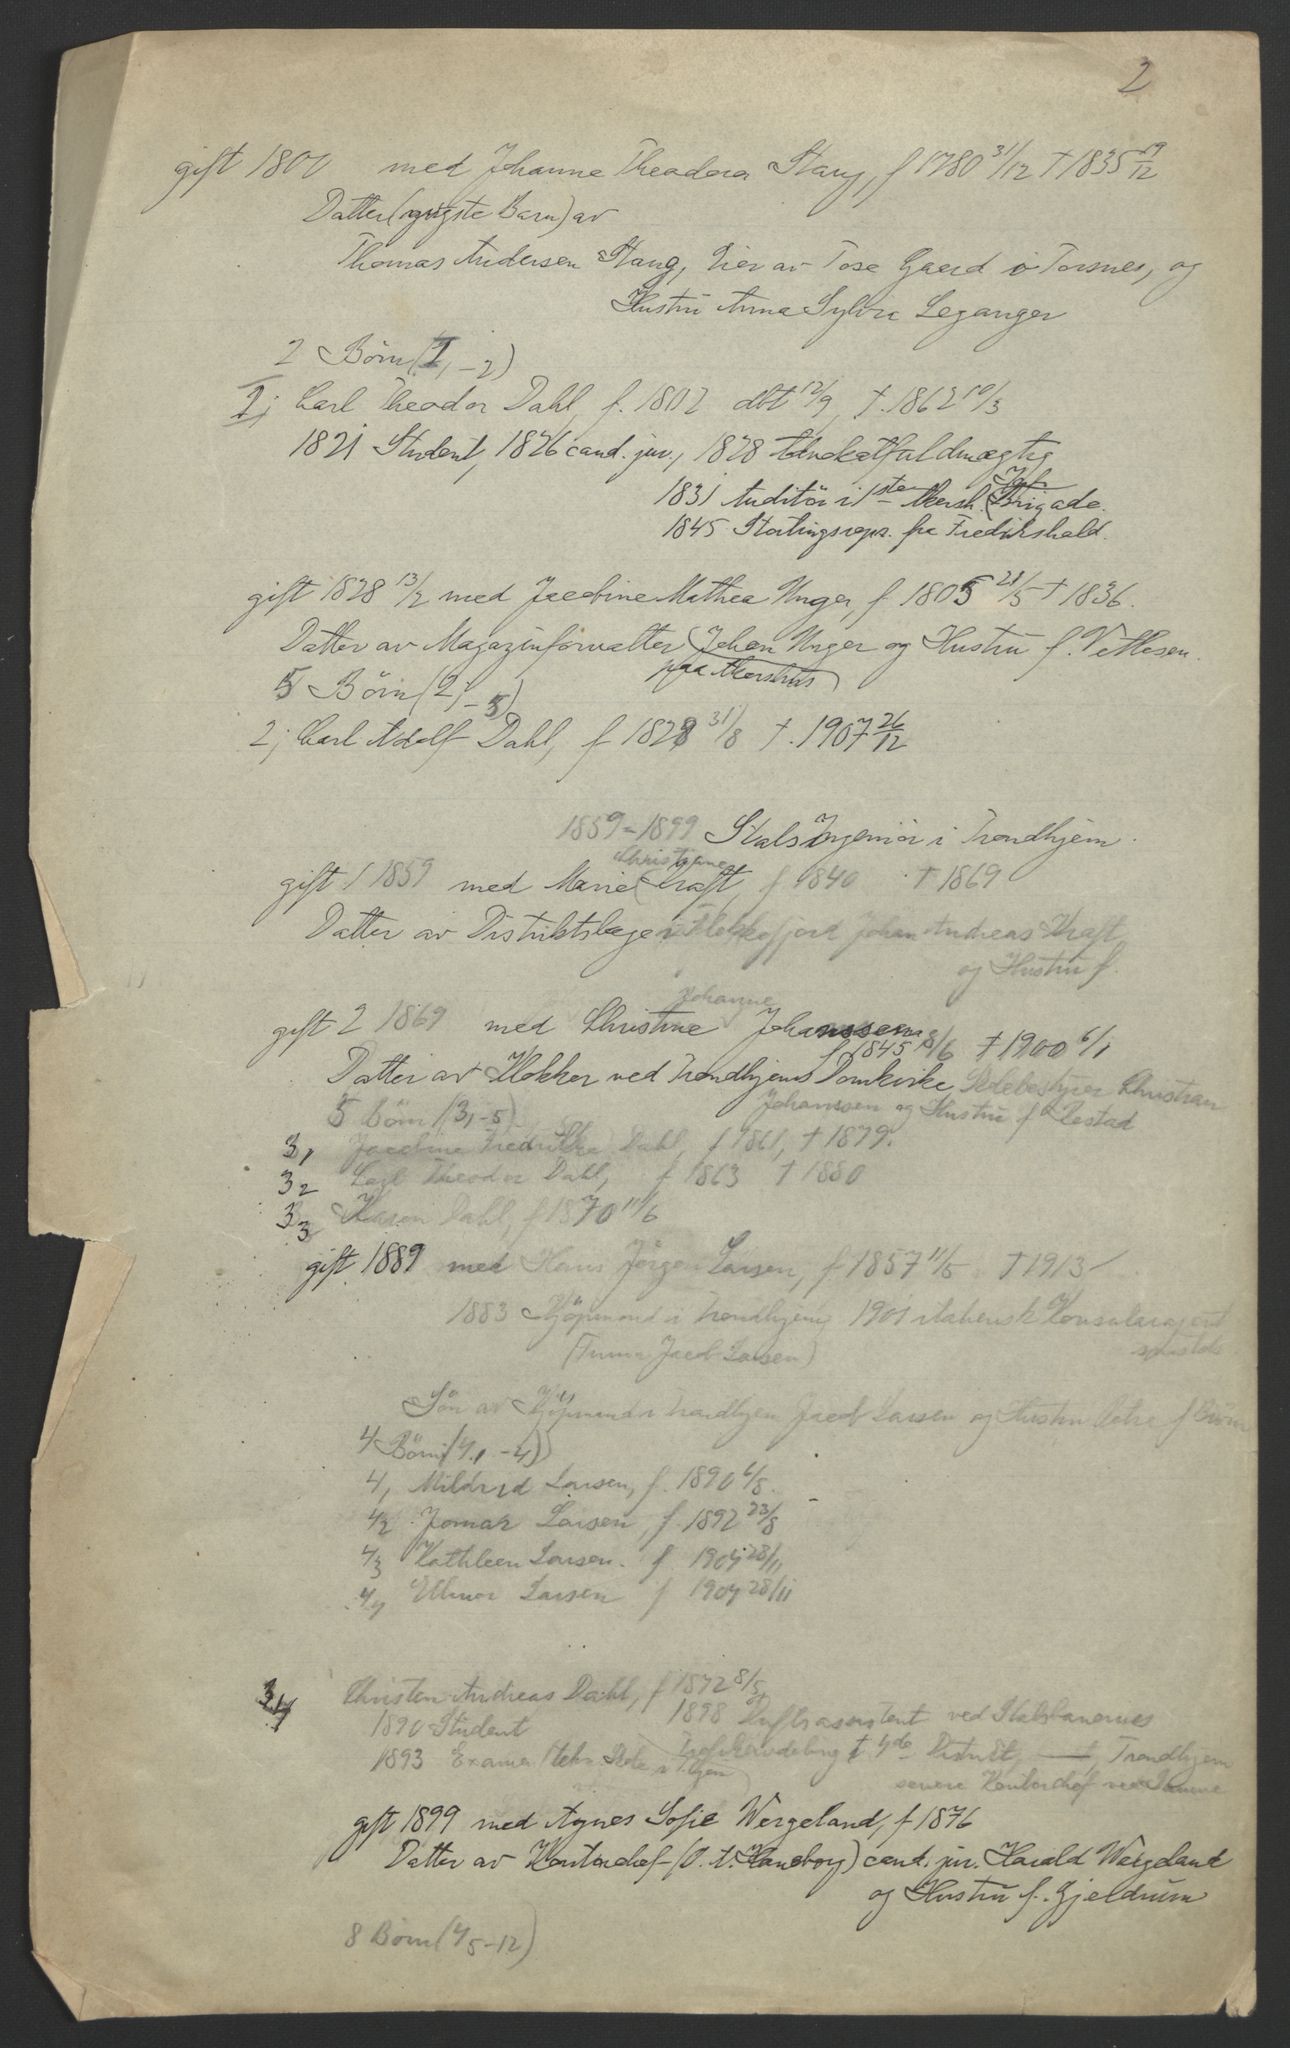 2
gift 1801 med Johanne Theodora Stang, f 1780 31/12 † 1835 19/12
Datter (yngste Barn) av
Thomas Andersen Stang, Eier av Tose Gaard i Torsnes, og
Hustru Anna Sylvia Leganger
2 Börn (1, -2)
1; Carl Theodor Dahl, f. 1802 dbt 12/9, †. 1862 19/3
1821 Student, 1826 cand. jur., 1828 Advokatfuldmægtig
1831 Auditör i 1ste Akersh. Inf. Brigade.
1845 Stortingsrepr. fra Fredrikshald.
gift 1828 13/2 med Jacobine Mathea Unger, f 1805 28/5 † 1836.
Datter av Magazinforvalter Johan Unger og Hustru f. Vethesen.
paa Akershus
5 Börn (2, -5)
2; Carl Adolf Dahl, f 1828 31/8 †. 1907 26/12
1859-1899 Statsingeniör i Trondhjem.
Christiane
gift 1 1859 med Marie Kraft, f 1840 † 1869
Datter av Distriktslæge i Flekkefjord Johan Andreas Kraft
og Hustru f.
Johanne
gift 2 1869 med Christine Johanssen
f 1845 18/6 † 1900 6/1
Datter av Klokker ved Trondhjems Domkirke, Christian
Johanssen og Hustru f Restad
5 Börn (3, -5)
3,1 Jacobine Fredrikke Dahl, f 1861, † 1879.
3,2 Carl Theodor Dahl, f 1863 † 1880
3,3 Karen Dahl, f 1870 11/6
gift 1889 med Hans Jörgen Larsen, f 1857 11/5 † 1913
1883 Kjöpmand i Trondhjem, 1901 italiensk Konsularagent
sammesteds
(Firma Jacob Larsen)
Sön av Kjöpmand i Trondhjem Jacob Larsen og Hustru f
4 Börn (4,1 -4)
4,1 Mildrid Larsen, f. 1890 6/8.
4,2 Jomar Larsen, f. 1892 23/8
4,3 Kathleen Larsen. f 1904 28/11
4,4 Ellinor Larsen f 1904 28/11
3,4 Christen Andreas Dahl, f 1872 8/5
1890 Student 1898 Driftsassistent ved Statsbanernes
1893 Examen Distrikt, Trondhjem
senere Kontorchef ved samme
gift 1899 med Agnes Sofie Wergeland, f 1876
Datter av Kontorchef cand. jur. Harald Wergeland
og Hustru f. Gjeldrum
8 Börn (4,5-12)